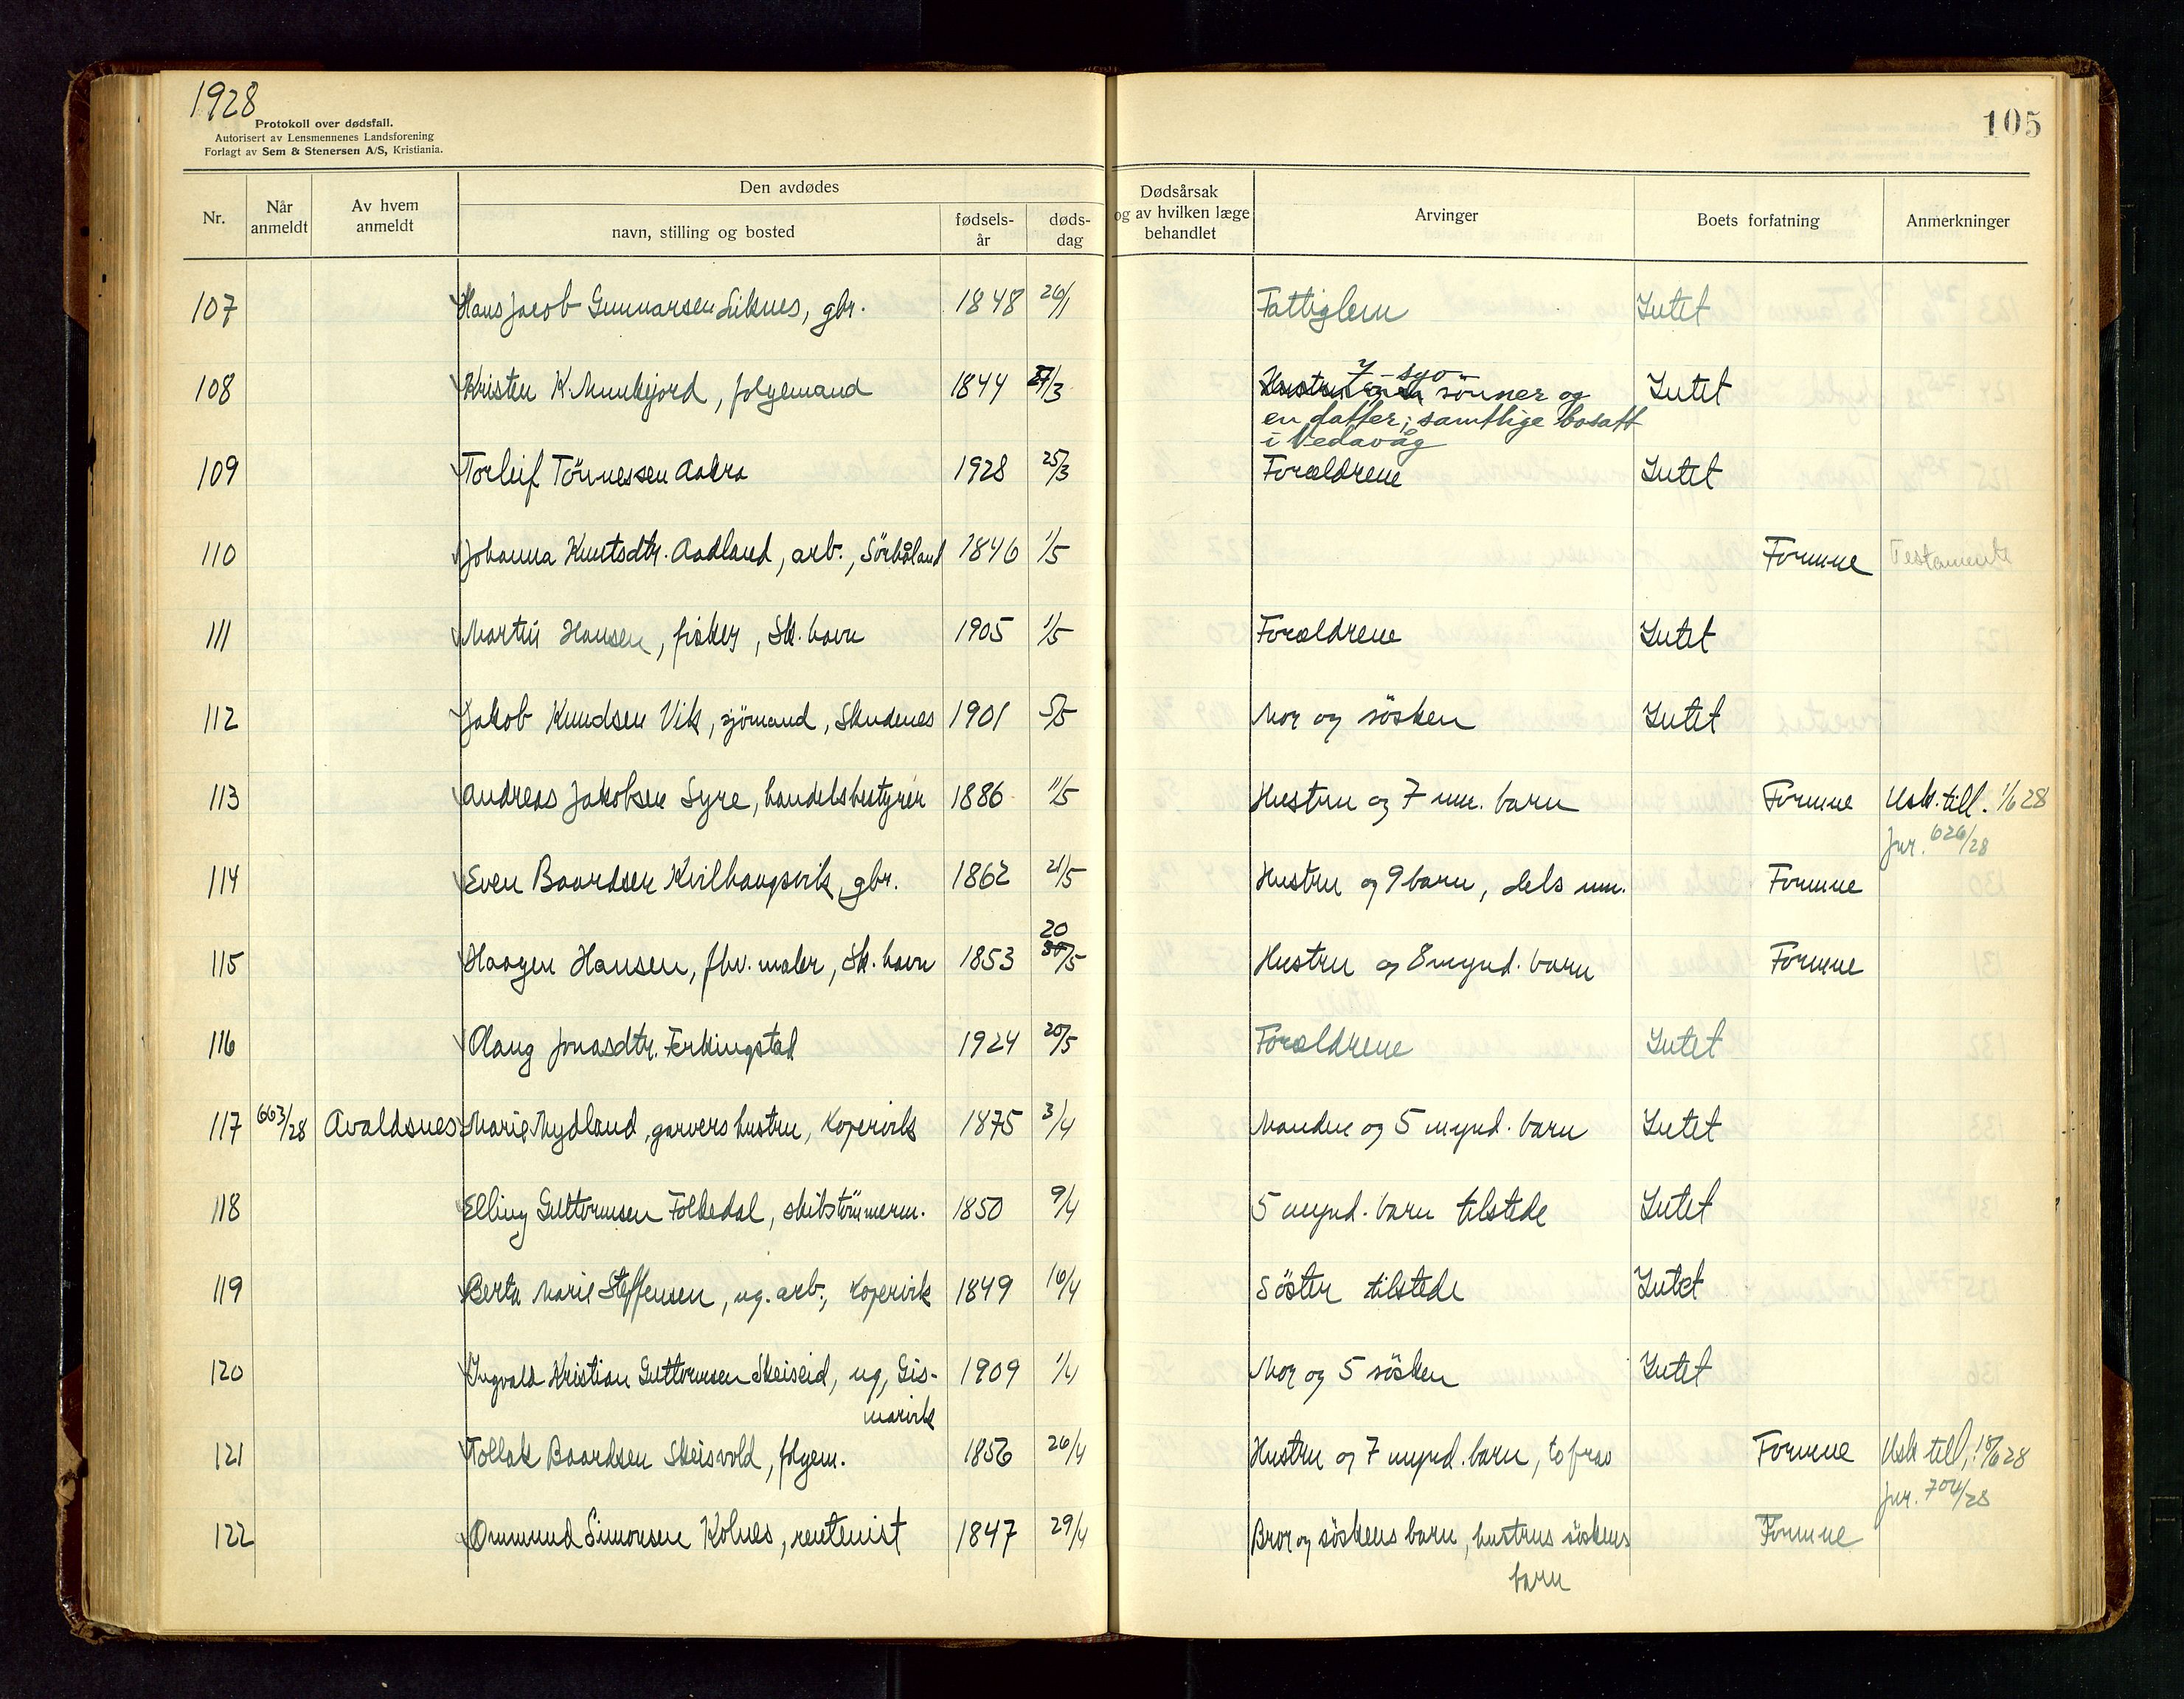 1928
Protokoll over dødsfall.
Autorisert av Lensmennenes Landsforening
Forlagt av Sem & Stenersen A/S, Kristiania.
105
Nr. Når anmeldt Av hvem anmeldt Den avdødes navn, stilling og bosted fødselsår dødsdag Dødsårsak og av hvilken læge behandlet Arvinger Boets forfatning Anmerkninger
107 Hans Jacob Gunnarsen Liknes, gbr. 1848 26/1 Fattiglem Intet
108 Kristen K. Munkejord, følgemand 1844 27/3 sønner og Intet
en datter; samtlige bosatt
i Vedavåg
109 Torleif Tönnessen Aakra 1928 25/3 Forældrene Intet
110 Johanna Knutsdtr. Aadland, arb., Sörbåland 1846 1/5 Formue Testamente
111 Martin Hansen, fisker, Sk. havn 1905 1/5 Forældrene Intet
112 Jakob Knudsen Vik, sjömand, Skudenes 1901 5/5 Mor og søsken Intet
113 Andreas Jakobsen Syre, handelsbestyrer 1886 11/5 Hustru og 7 um. barn Formue Usk. till. 1/6 28
Jnr. 626/28
114 Even Baardsen Kvilhaugsvik, gbr. 1862 21/5 Hustru og 9 barn, dels um. Formue
20
115 Haagen Hansen, fhv. maler, Sk. havn 1853 30/5 Hustru og 8 mynd. barn Formue
116 Olaug Jonasdtr. Ferkingstad 1924 20/5 Forældrene Intet
117 663/28 Avaldsnes Marie Mydland, garvers hustru, Kopervik 1875 3/4 Manden og 5 mynd. barn Intet
118 Elling Guttormsen Folkedal, skibstömmerm. 1850 9/4 5 mynd. barn tilstede Intet
119 Berta Marie Steffensen, ug. arb., Kopervik 1849 16/4 Söster tilstede Intet
120 Ingvald Kristian Guttormsen Skeiseid, ug, Gis- 1909 1/4 Mor og 5 søsken Intet
marvik
121 Tollak Baardsen Skeisvold, følgem. 1856 26/4 Hustru og 7 mynd. barn, to frav Formue Usk till. 18/6 28
Jnr. 704/28
122 Ommund Simonsen Kolnes, rentenist 1847 29/4 Bror og söskens barn, hustrus söskens Formue
barn